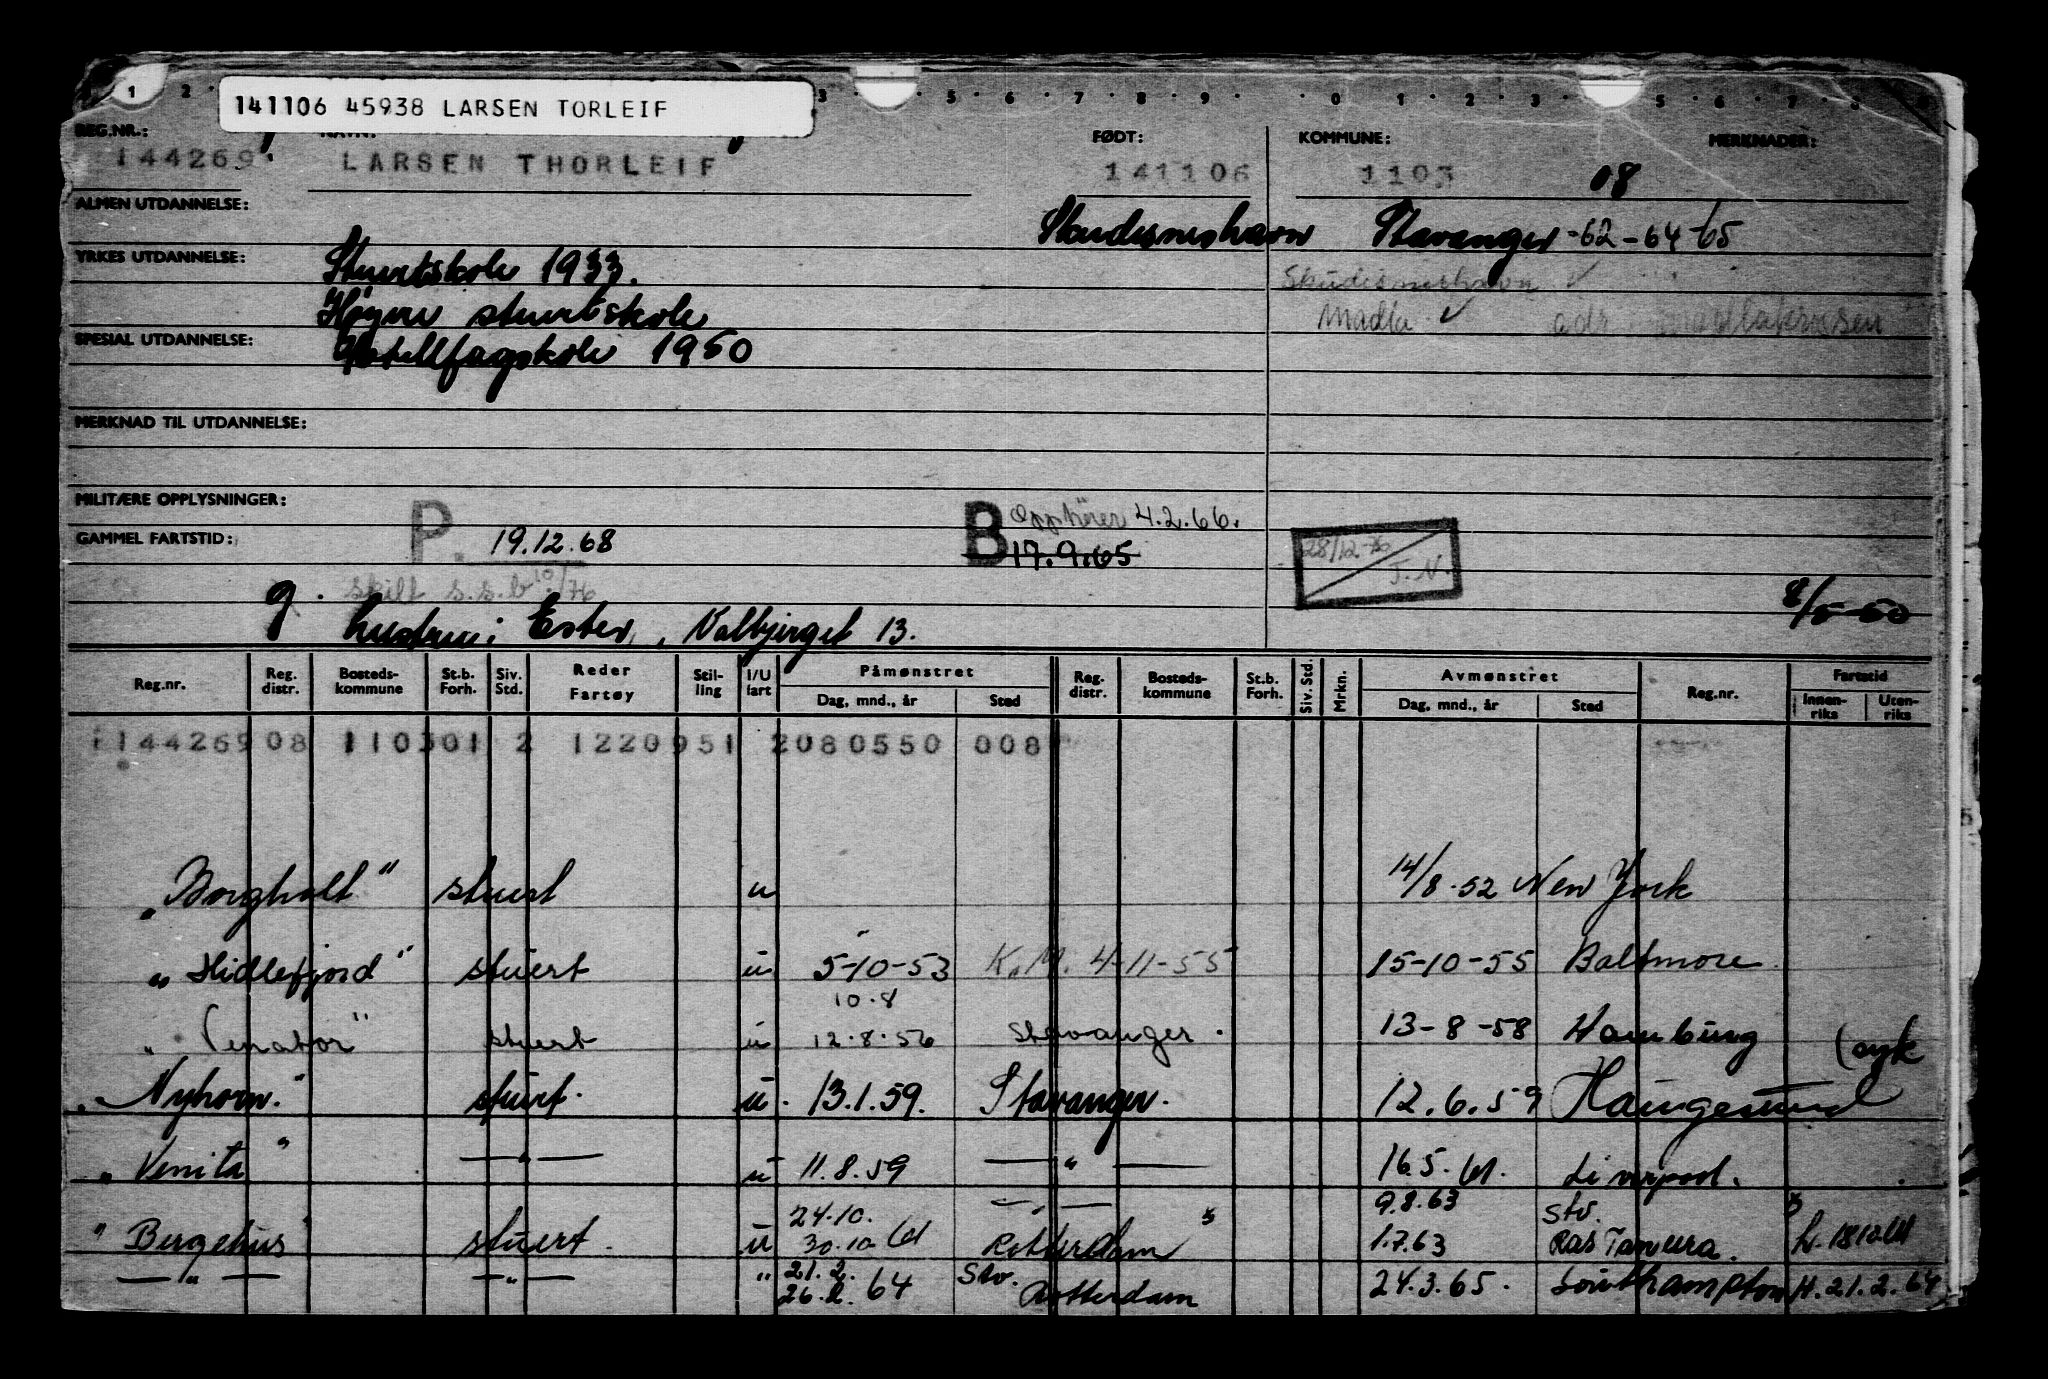 1 2 3 5 6 7 8 9 0 1 2 3 5 6 7 8
141106 45938 LARSEN TORLEIF
REG.NR.: NAVN: FØDT: KOMMUNE: MERKNADER:
144269 LARSEN THORLEIF 141106 1103 08
ALMEN UTDANNELSE: Skudesneshavn Stavanger -62-64-65
YRKES UTDANNELSE: Stuertskole 1933. Skudesneshavn ✓
Høyere stuertskole Madla ✓ adr
SPESIAL UTDANNELSE: Hotellfagskole 1950
MERKNAD TIL UTDANNELSE:
MILITÆRE OPPLYSNINGER: P. B Opphører 4.2.66.
GAMMEL FARTSTID: 19.12.68 17.9.65 28/12-76 T.N.
g. skilt s.s.b 10/76 8/5-50
hustru: Ester, Valbjerget 13.
Reg.nr. Reg. distr. Bosteds-kommune St.b. Forh. Siv. Std. Reder Fartøy Stil-ling I/U fart Påmønstret Reg. distr. Bosteds-kommune St.b. Forh. Siv. Std. Mrkn. Avmønstret Reg.nr. Fartstid
Dag, mnd., år Sted Dag, mnd., år Sted Innen-riks Uten-riks
144269 08 110301 2 1220951 2080550 008
"Borgholt" stuert u 14/8.52 New York
"Hidlefjord" stuert u 5-10-53 K.M. 4-11-55 15-10-55 Baltmore
10.8
"Venator" stuert u 12.8.56 Stavanger. 13-8-58 Hamburg
"Nyhorn." stuert. u. 13.1.59. Stavanger. 12.6.59 Haugesund (syk
"Venita" —"— u 11.8.59 —"— 16.5.61. Liverpool.
24.10. —"— 9.8.63 Stv.
"Bergehus" stuert. u 30.10 61 Rotterdam 1.7.63 Ras Tanura.
21.2. Stv.
—"— —"— " 26.2. 64 Rotterdam 24.3.65. Southampton H.21.2.64